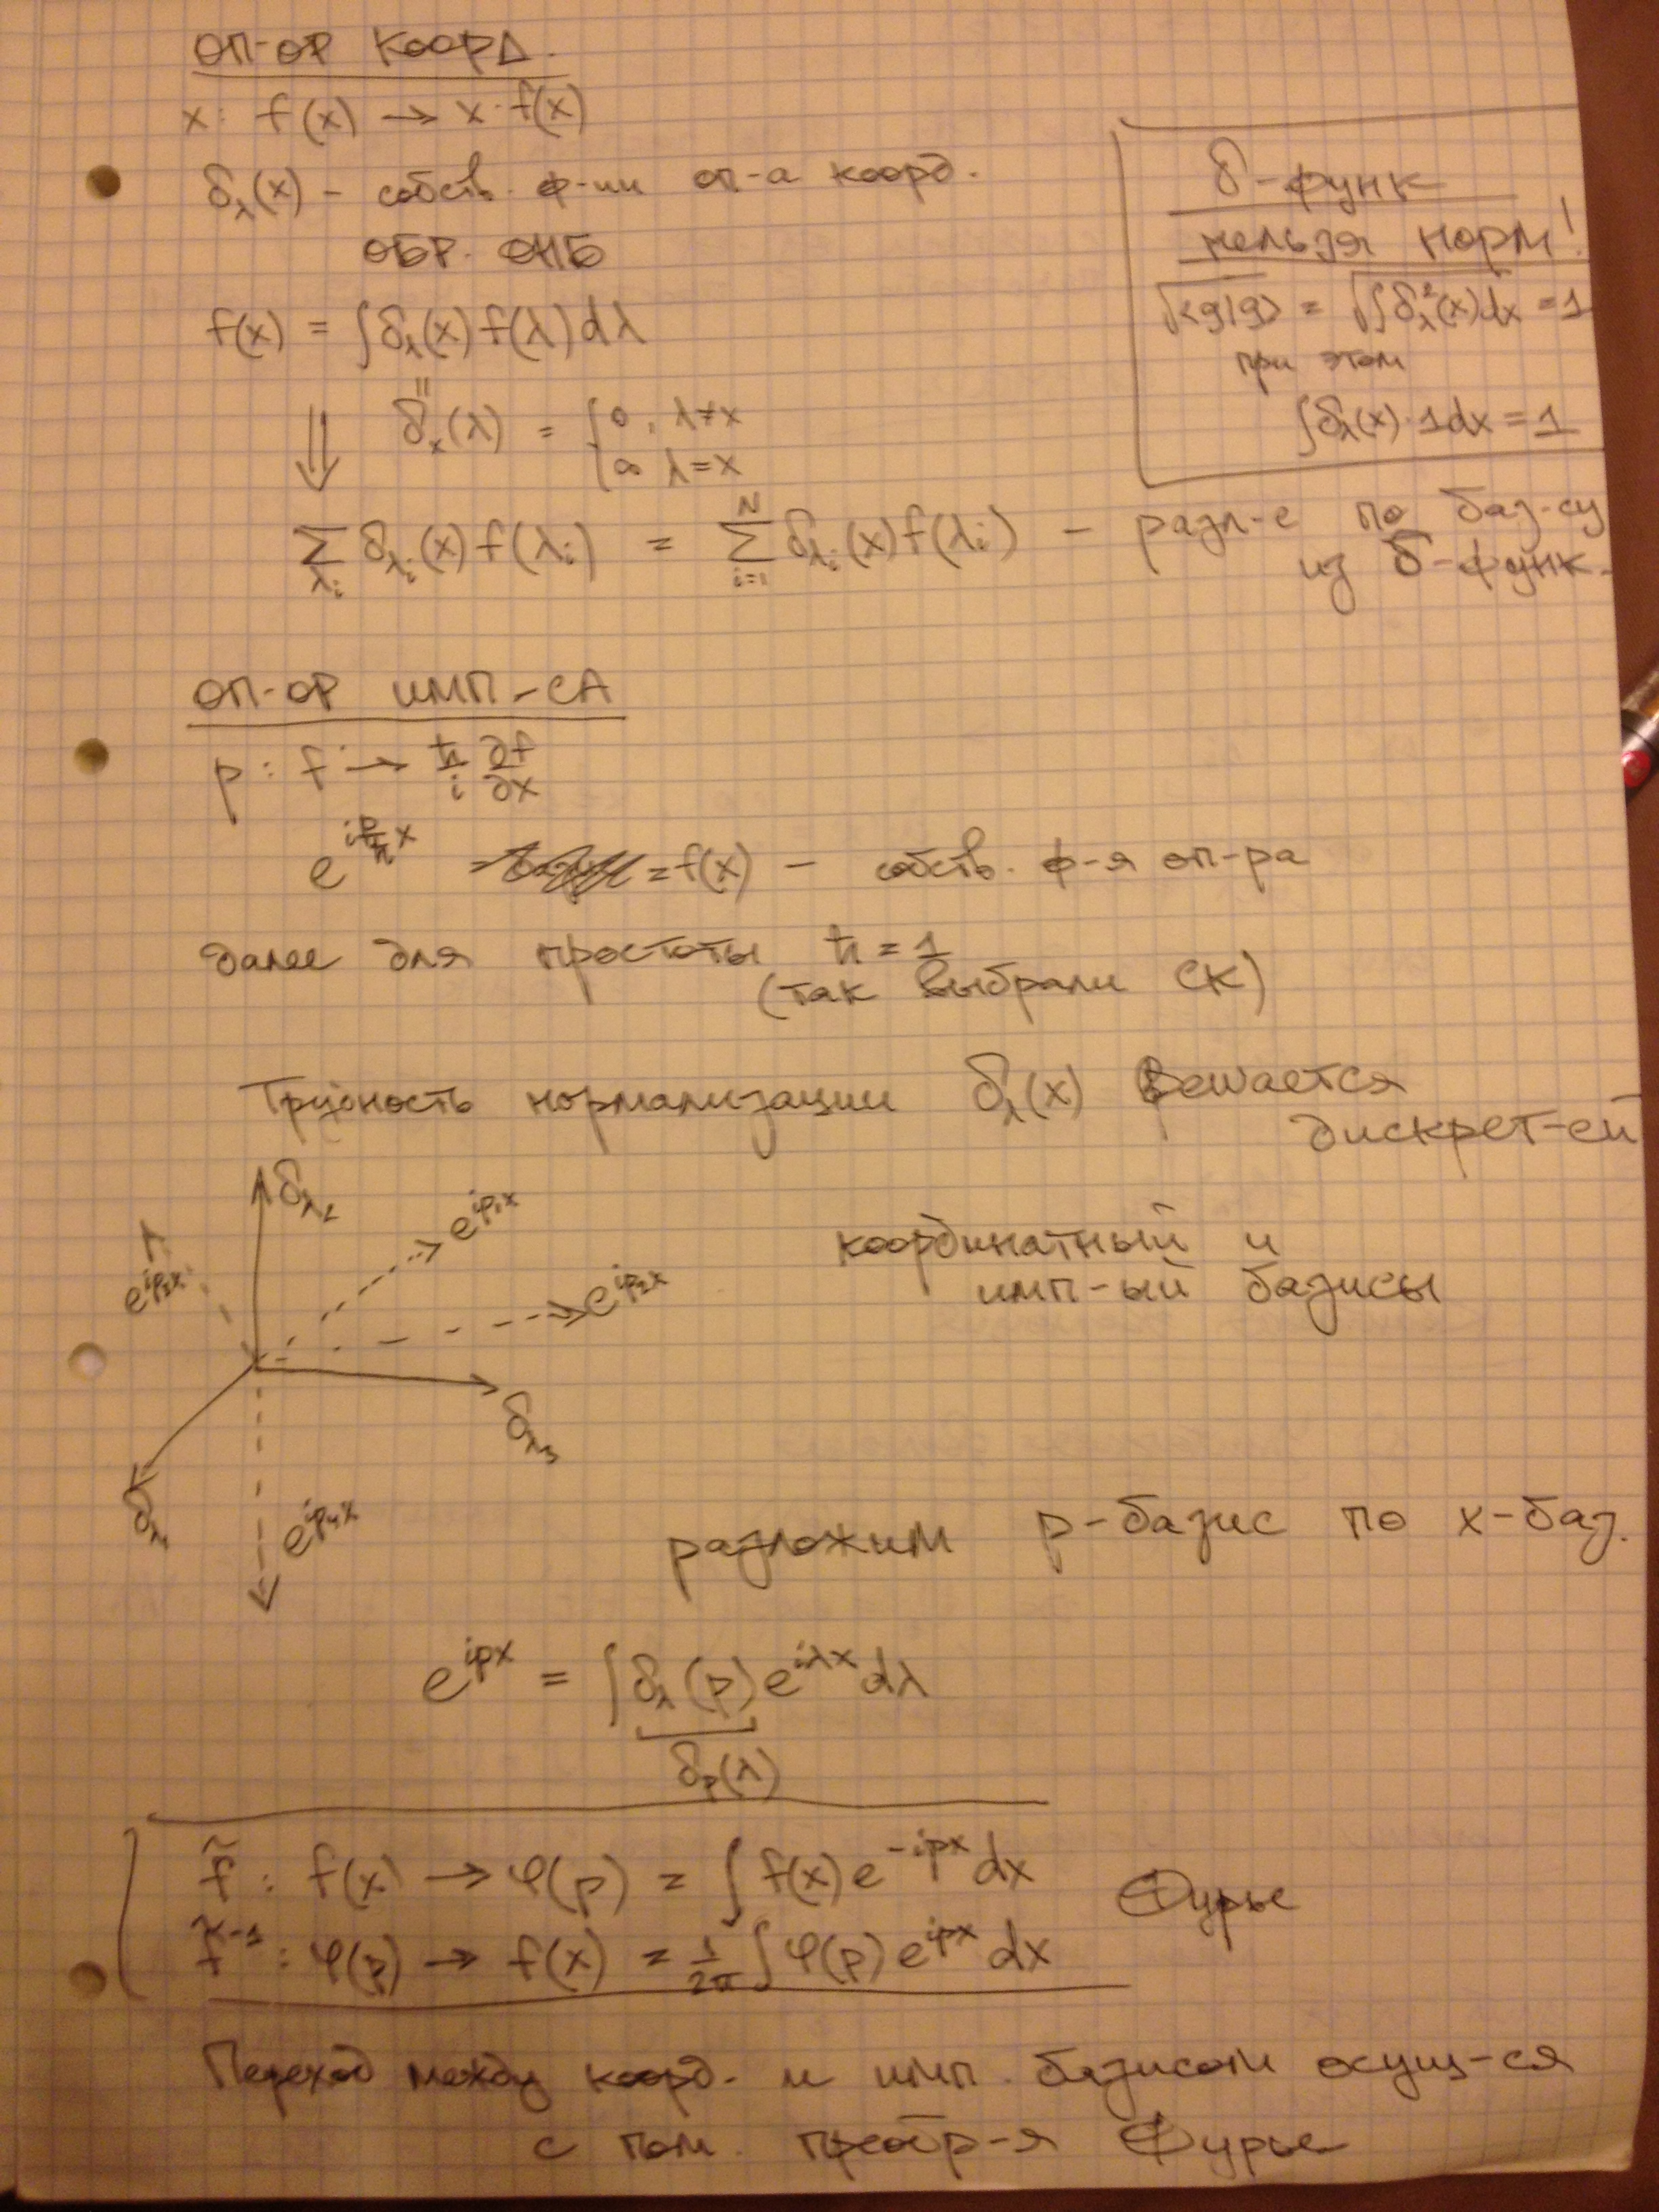 ОП-ОР КООРД.
x: f(x) → x·f(x)
δ_λ(x) – собств. ф-ии оп-а коорд.
ОБР. ОНБ
f(x) = ∫δ_λ(x) f(λ) dλ
"
δ_x(λ) = { 0, λ≠x
∞ λ=x
⇓
∑_{λ_i} δ_{λ_i}(x) f(λ_i) = ∑_{i=1}^{N} δ_{λ_i}(x) f(λ_i) – разл-е по баз-су
из δ-функ.
δ-функ
нельзя норм!
√<g|g> = √∫δ_λ²(x)dx = 1
при этом
∫δ_λ(x)·1dx = 1
ОП-ОР ИМП-СА
p: f → ħ/i ∂f/∂x
e^{i p/ħ x} = f(x) – собств. ф-я оп-ра
далее для простоты ħ = 1
(так выбрали СК)
Трудность нормализации δ_λ(x) решается
дискрет-ей
δ_{λ_2}
e^{ip_1x}
e^{ip_2x}
e^{ip_3x}
δ_{λ_3}
δ_{λ_1}
e^{ip_4x}
координатный и
имп-ый базисы
разложим p-базис по x-баз.
e^{ipx} = ∫δ_λ(p) e^{iλx} dλ
δ_p(λ)
f̃: f(x) → φ(p) = ∫ f(x) e^{-ipx} dx
f̃^{-1}: φ(p) → f(x) = 1/2π ∫ φ(p) e^{ipx} dx
Фурье
Переход между коорд. и имп. базисом осущ-ся
с пом. преобр-я Фурье